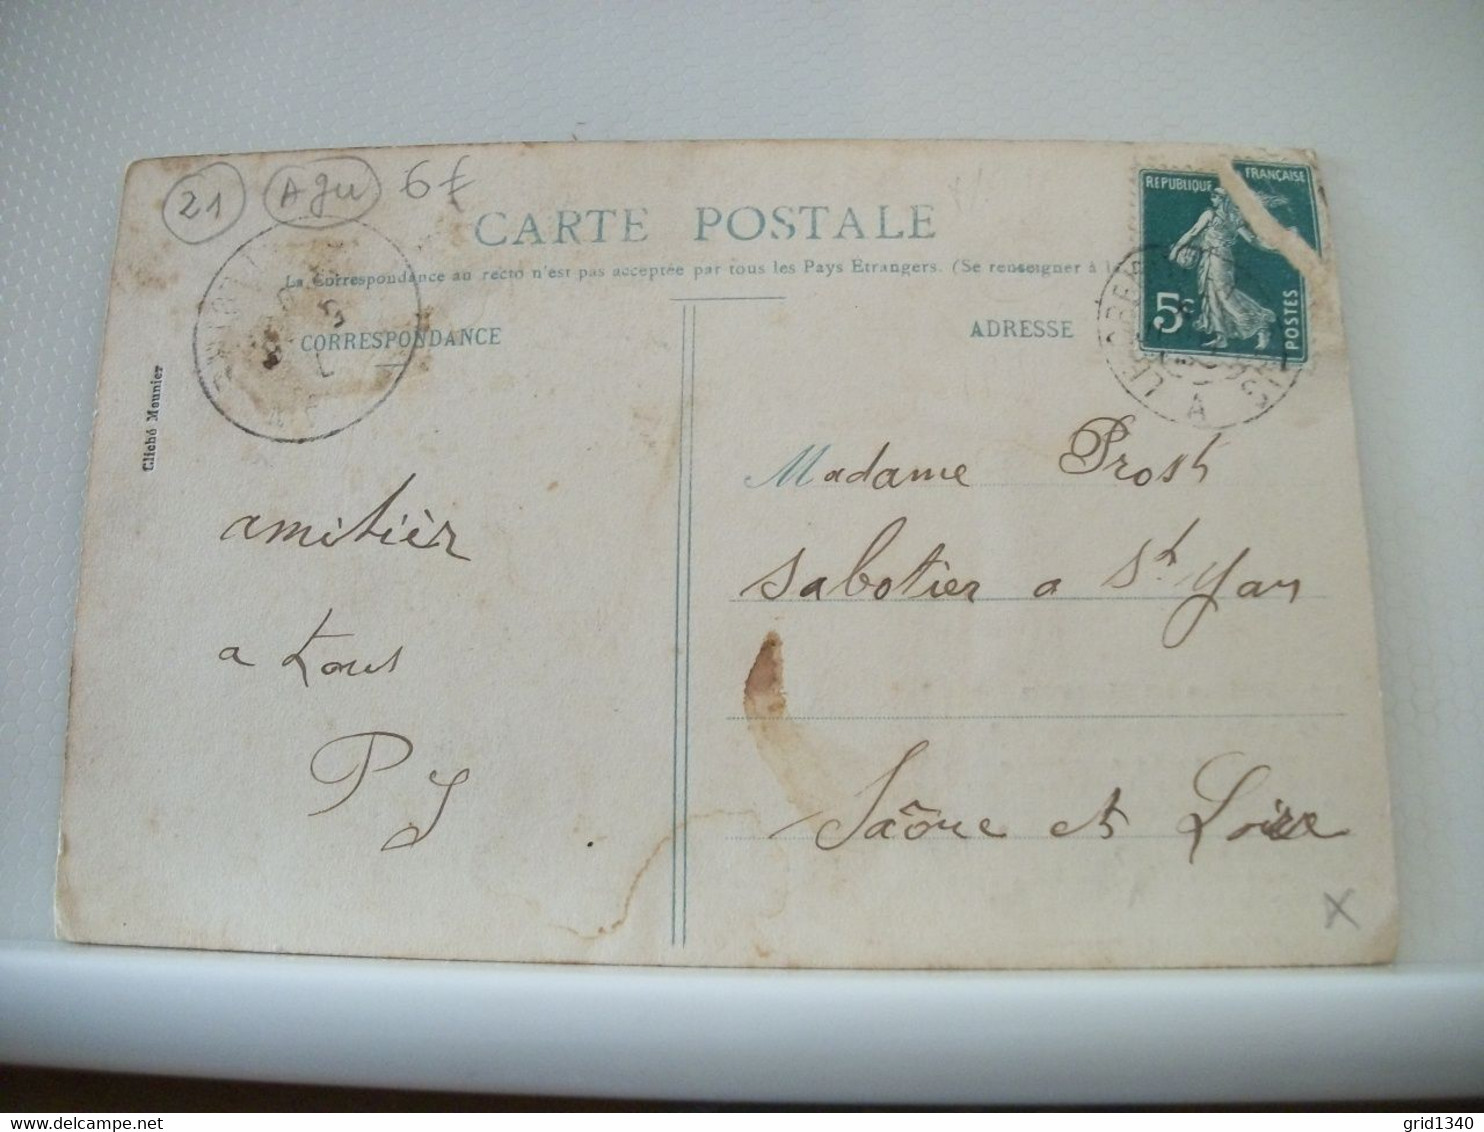 21 Agu 6f
CARTE POSTALE
La Correspondance au recto n'est pas acceptée par tous les Pays Etrangers. (Se renseigner à
CORRESPONDANCE
ADRESSE
REPUBLIQUE FRANÇAISE
5c
POSTES
A
Cliché Mounier
amitièr
a tous
P J
Madame Prost
Sabotier a St Yan
Saône et Loire
X
grid1340